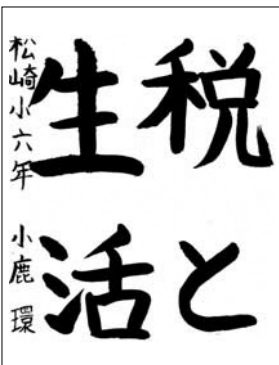 税と
生活
松崎小六年 小鹿環